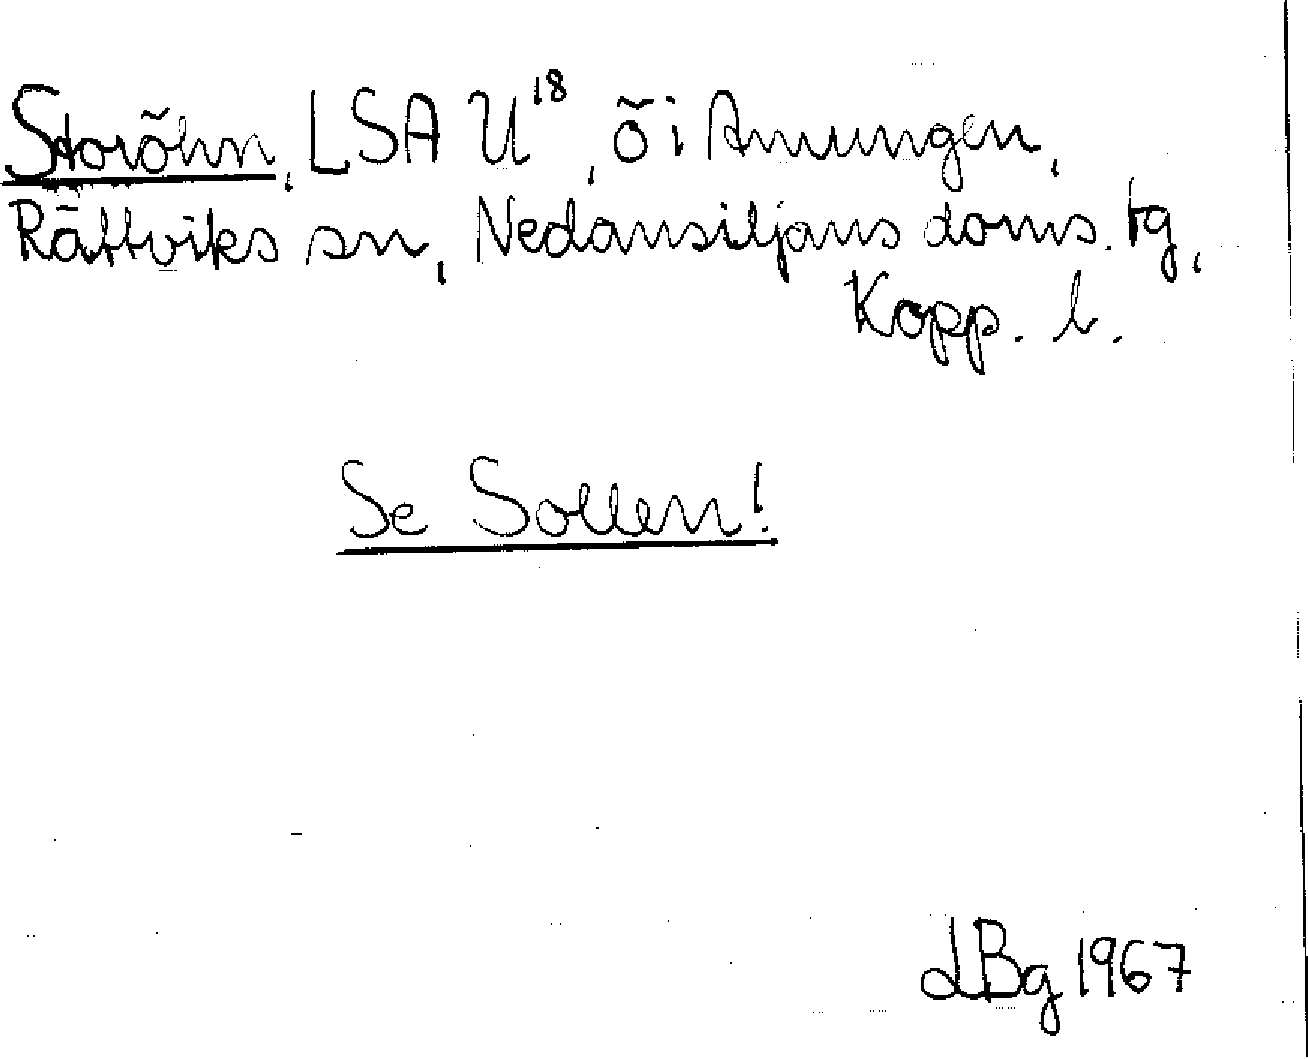 Storöhn, LSA U¹⁸, ö i Amungen,
Rättviks sn, Nedansiljans doms. tg,
Kopp. l.
Se Sollen!
LBg 1967